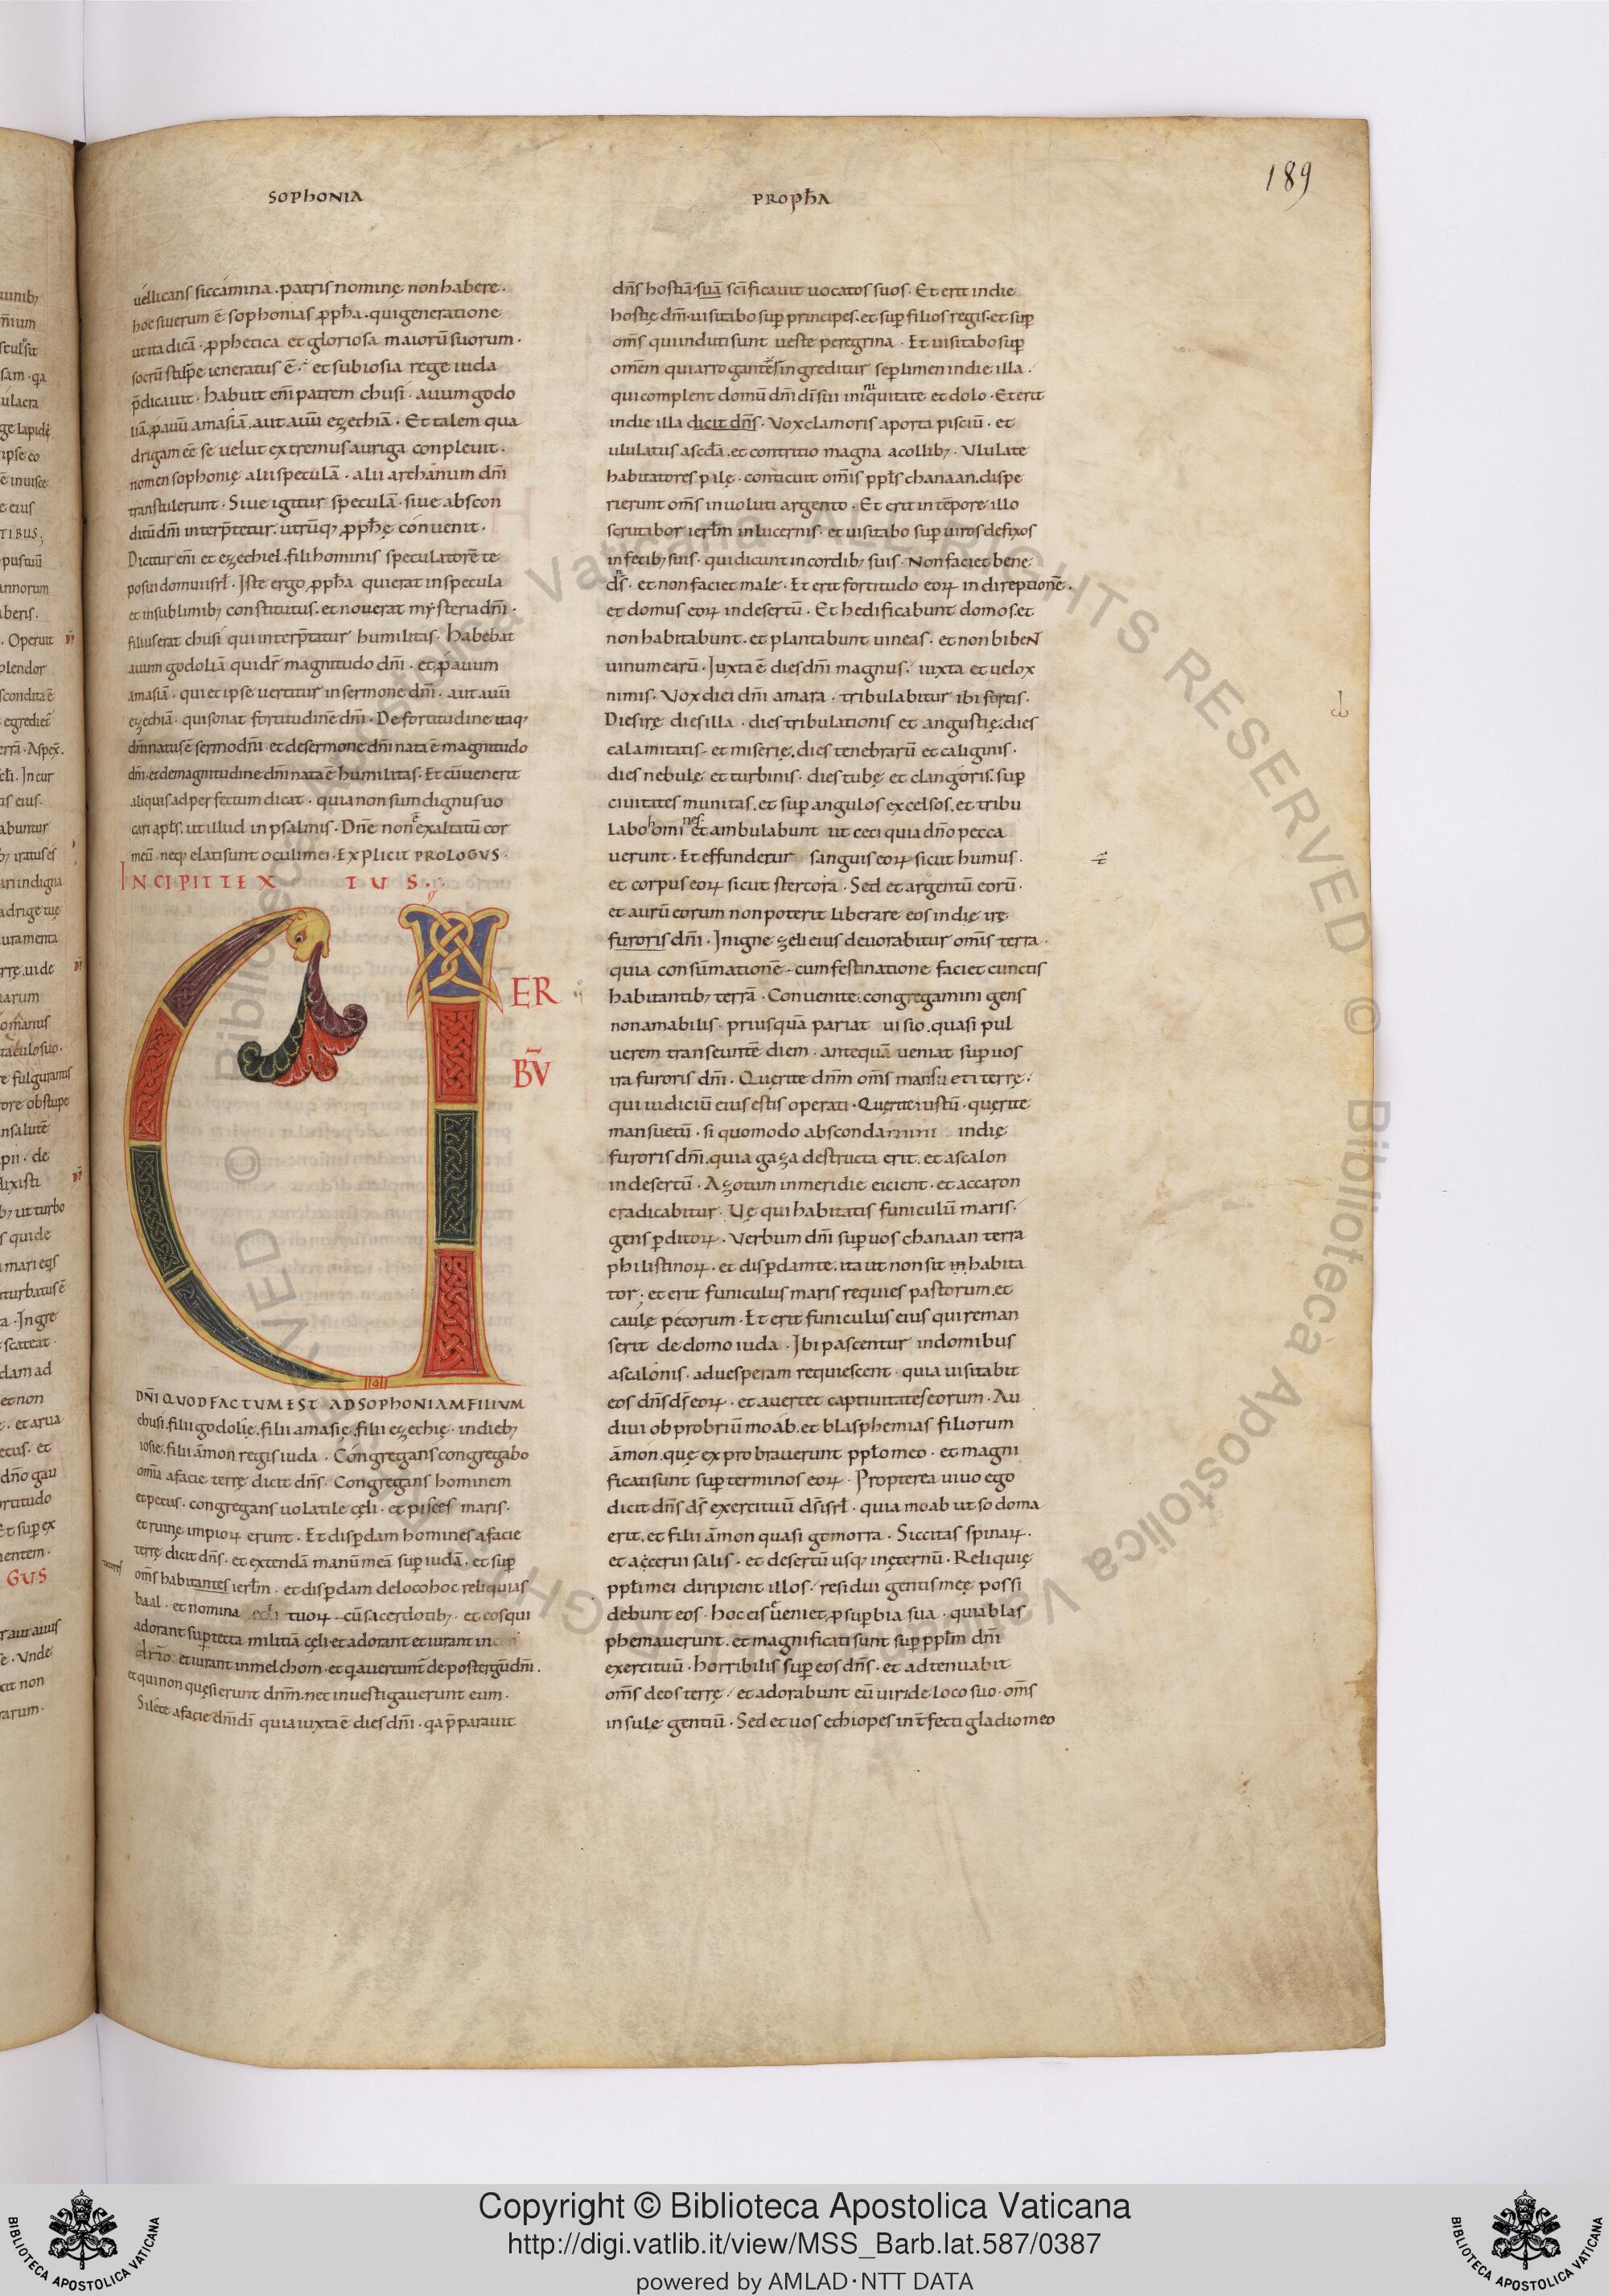 189
SOPHONIA
uellicans siccamina . patris nominę non habere .
hoc si uerum ē sophonias ꝓpħa . qui generatione
ut ita dicā . ꝓphetica et gloriosa maiorū suorum .
socrū stirpe ieneratus ē . et sub iosia rege iuda
p̄dicauit . habuit eni̅ patrem chusi . auum godo
liā . ꝓauū amasiā . aut auū ezechiā . Et talem qua
drigam eē se uelut extremus auriga conpleuit .
nomen sophonię alii speculā . alii archanum dn̄i
transtulerunt . Siue igitur speculā . siue abscon
ditū dn̄i interp̄tetur . utrūq; ꝓpħę conuenit .
Dicitur eni̅ et ezechiel . fili hominis speculatorē te
posui domui isrł . Iste ergo ꝓpħa qui erat in specula
et in sublimib; constitutus . et nouerat mysteria dn̄i .
filius erat chusi qui interp̄tatur humilitas . habebat
auum godoliā qui dr̄ magnitudo dn̄i . et ꝓauum
amasiā . qui et ipse uertitur in sermone dn̄i . aut auū
ezechiā . qui sonat fortitudinē dn̄i . De fortitudine itaq;
dn̄i natus ē sermo dn̄i . et de sermone dn̄i nata ē magnitudo
dn̄i . et de magnitudine dn̄i nata ē humilitas . Et cū uenerit
aliquis ad perfectum dicat . quia non sum dignus uo
cari apłs . ut illud in psalmis . Dn̄e non ē exaltatū cor
meū . neq; elati sunt oculi mei . EXPLICIT PROLOGVS .
INCIPIT TEX TUS .
U ER
BV̄
DN̄I QVOD FACTVM EST AD SOPHONIAM FILIVM
chusi . filii godolię . filii amasię . filii ezechię . in dieb;
iosię . filii āmon regis iuda . Congregans congregabo
om̄ia a facie terrę dicit dn̄s . Congregans hominem
et pecus . congregans uolatile cęli . et pisces maris .
et ruinę impioꝝ erunt . Et disp̱dam homines a facie
terrę dicit dn̄s . et extendā manū meā sup̱ iudā . et sup̱
om̄s habitantes ierłm . et disp̱dam de loco hoc reliquias
baal . et nomina edi tuoꝝ . cū sacerdotib; . et eos qui
adorant sup̱ tecta militiā cęli . et adorant et iurant in
dn̄o . et iurant in melchom . et q̇ auertunt̄ de post tergū dn̄i .
et qui non quęsierunt dn̄m . nec inuestigauerunt eum .
Silete a facie dn̄i di̅ quia iuxta ē dies dn̄i . q̇a p̄parauit
PROPħA
dn̄s hostiā suā sc̄ificauit uocatos suos . Et erit in die
hostię dn̄i . uisitabo sup̱ principes . et sup̱ filios regis . et sup̱
om̄s qui induti sunt ueste peregrina . Et uisitabo sup̱
omēm qui arroganter ingreditur sep̱ limen in die illa .
qui complent domū dn̄i di̅ sui iniquitate et dolo . Et erit
in die illa dicit dn̄s . Vox clamoris a porta pisciū . et
ululatus a scd̄a . et contritio magna a collib; . Vlulate
habitatores palę . conticuit om̄is ppłs chanaan . dispe
rierunt om̄s inuoluti argento . Et erit in tēpore illo
scrutabor ierłm in lucernis . et uisitabo sup̱ uiros defixos
in fecib; suis . qui dicunt in cordib; suis . Non faciet bene
dn̄s . et non faciet male . Et erit fortitudo eoꝝ in direptionē .
et domus eoꝝ in desertū . Et hedificabunt domos . et
non habitabunt . et plantabunt uineas . et non bibeN
uinum earū . Iuxta ē dies dn̄i magnus . iuxta et uelox
nimis . Vox diei dn̄i amara . tribulabitur ibi fortis .
Dies irę dies illa . dies tribulationis et angustię . dies
calamitatis . et miserię . dies tenebrarū et caliginis .
dies nebulę et turbinis . dies tubę et clangoris . sup̱
ciuitates munitas . et sup̱ angulos excelsos . et tribu
labo homines . et ambulabunt ut ceci quia dn̄o pecca
uerunt . Et effundetur sanguis eoꝝ sicut humus .
et corpus eoꝝ sicut stercora . Sed et argentū eorū .
et aurū eorum non poterit liberare eos in die irę
furoris dn̄i . In igne zeli eius deuorabitur om̄is terra .
quia consūmationē . cum festinatione faciet cunctis
habitantib; terrā . Conuenite . congregamini gens
non amabilis . priusquā pariat uisio . quasi pul
uerem transeuntē diem . antequā ueniat sup̱ uos
ira furoris dn̄i . Quęrite dn̄m om̄s mansueti terrę .
qui iudiciū eius estis operati . Quęrite iustū . quęrite
mansuetū . si quomodo abscondamini in die
furoris dn̄i . quia gaza destructa erit . et ascalon
in desertū . Azotum in meridie eicient . et accaron
eradicabitur . Vę qui habitatis funiculū maris .
gens p̱ditoꝝ . Verbum dn̄i sup̱ uos chanaan terra
philistinoꝝ . et disp̱dam te . ita ut non sit inhabita
tor . et erit funiculus maris requies pastorum . et
caulę pecorum . Et erit funiculus eius qui reman
serit de domo iuda . Ibi pascentur in domibus
ascalonis . ad uesperam requiescent . quia uisitabit
eos dn̄s ds̄ eoꝝ . et auertet captiuitates eorum . Au
diui obprobriū moab . et blasphemias filiorum
āmon . quę exprobrauerunt ppło meo . et magni
ficati sunt sup̱ terminos eoꝝ . Propterea uiuo ego
dicit dn̄s ds̄ exercituū ds̄ isrł . quia moab ut sodoma
erit . et filii āmon quasi gomorra . Siccitas spinaꝝ .
et acerui salis . et desertū usq; in ęternū . Reliquię
ppłi mei diripient illos . residui gentis męę possi
debunt eos . hoc eis ueniet ꝓ sup̱bia sua . quia blas
phemauerunt . et magnificati sunt sup̱ ppłm dn̄i
exercituū . horribilis sup̱ eos dn̄s . et adtenuabit
om̄s deos terrę . et adorabunt eū uiri de loco suo . om̄s
insulę gentiū . Sed et uos ethiopes int̄fecti gladio meo
Copyright © Biblioteca Apostolica Vaticana
http://digi.vatlib.it/view/MSS_Barb.lat.587/0387
powered by AMLAD·NTT DATA
BIBLIOTECA APOSTOLICA VATICANA
BIBLIOTECA APOSTOLICA VATICANA